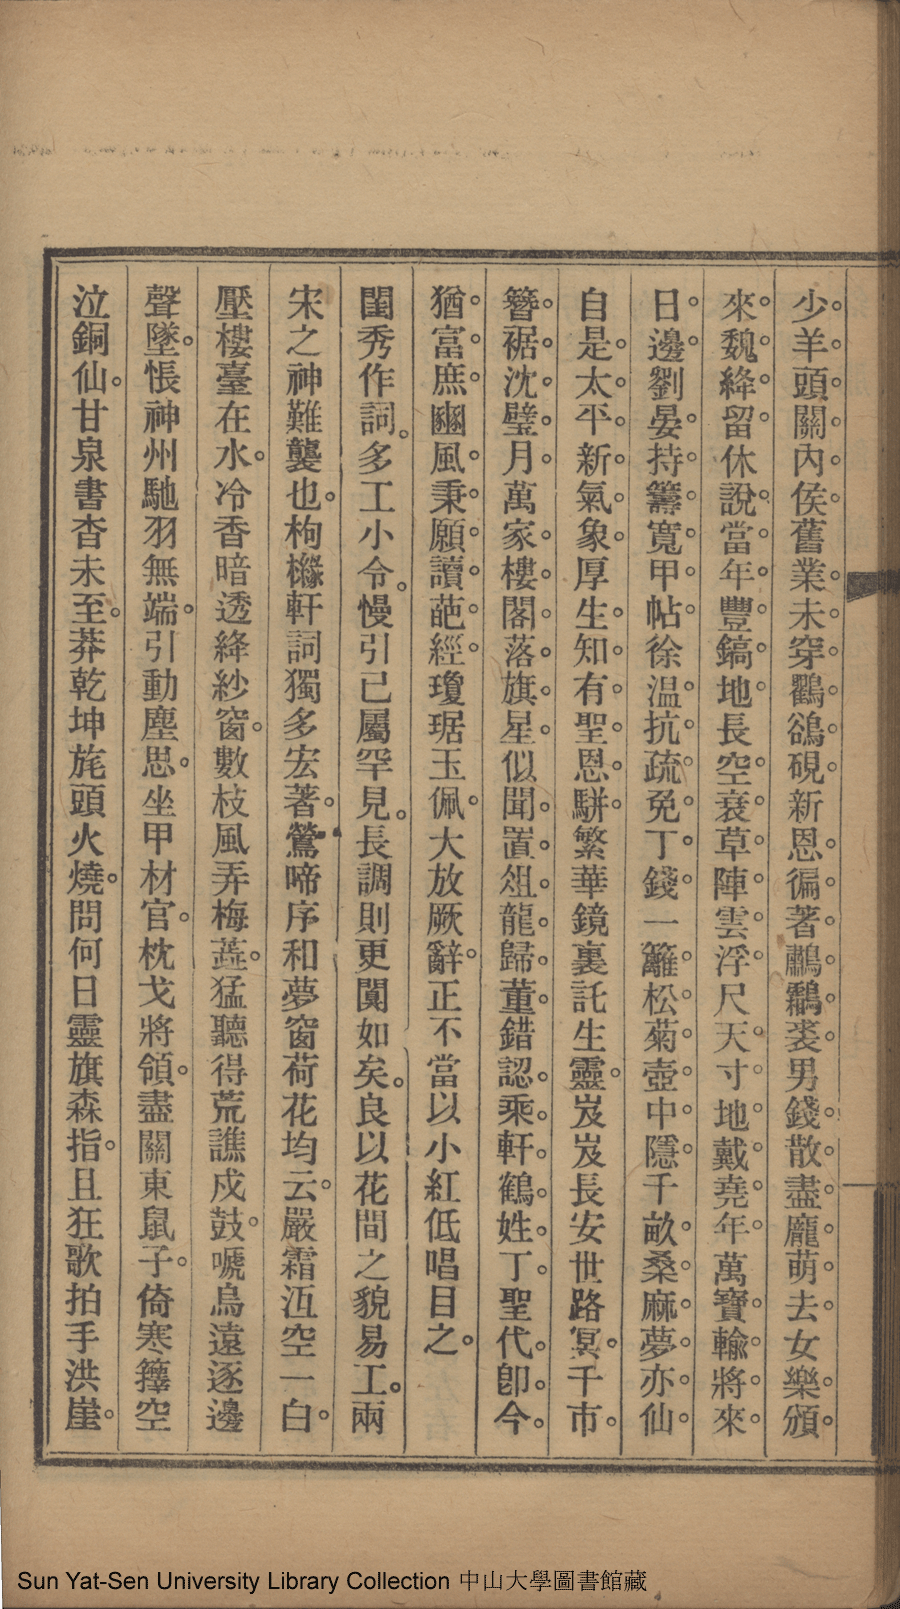 少羊頭關內侯舊業未穿鸜鵒硯新恩徧著鷫鸘裘男錢散盡龐萌去女樂頒
來魏絳留休說當年豐鎬地長空衰草陣雲浮尺天寸地戴堯年萬寶輸將來
日邊劉晏持籌寬甲帖徐溫抗疏免丁錢一籬松菊壺中隱千畝桑麻夢亦仙
自是太平新氣象厚生知有聖恩駢繁華鏡裏託生靈岌岌長安世路冥千市
簪裾沈璧月萬家樓閣落旗星似聞置俎龍歸董錯認乘軒鶴姓丁聖代卽今
猶富庶豳風秉願讀葩經瓊琚玉佩大放厥辭正不當以小紅低唱目之
閨秀作詞多工小令慢引已屬罕見長調則更闃如矣良以花間之貌易工兩
宋之神難襲也枸櫞軒詞獨多宏著鶯啼序和夢窗荷花均云嚴霜沍空一白
壓樓臺在水冷香暗透絳紗窗數枝風弄梅蕋猛聽得荒譙戍鼓嗁烏遠逐邊
聲墜悵神州馳羽無端引動塵思坐甲材官枕戈將領盡關東鼠子倚寒籜空
泣銅仙甘泉書杳未至莽乾坤旄頭火燒問何日靈旗森指且狂歌拍手洪崖
Sun Yat-Sen University Library Collection 中山大學圖書館藏